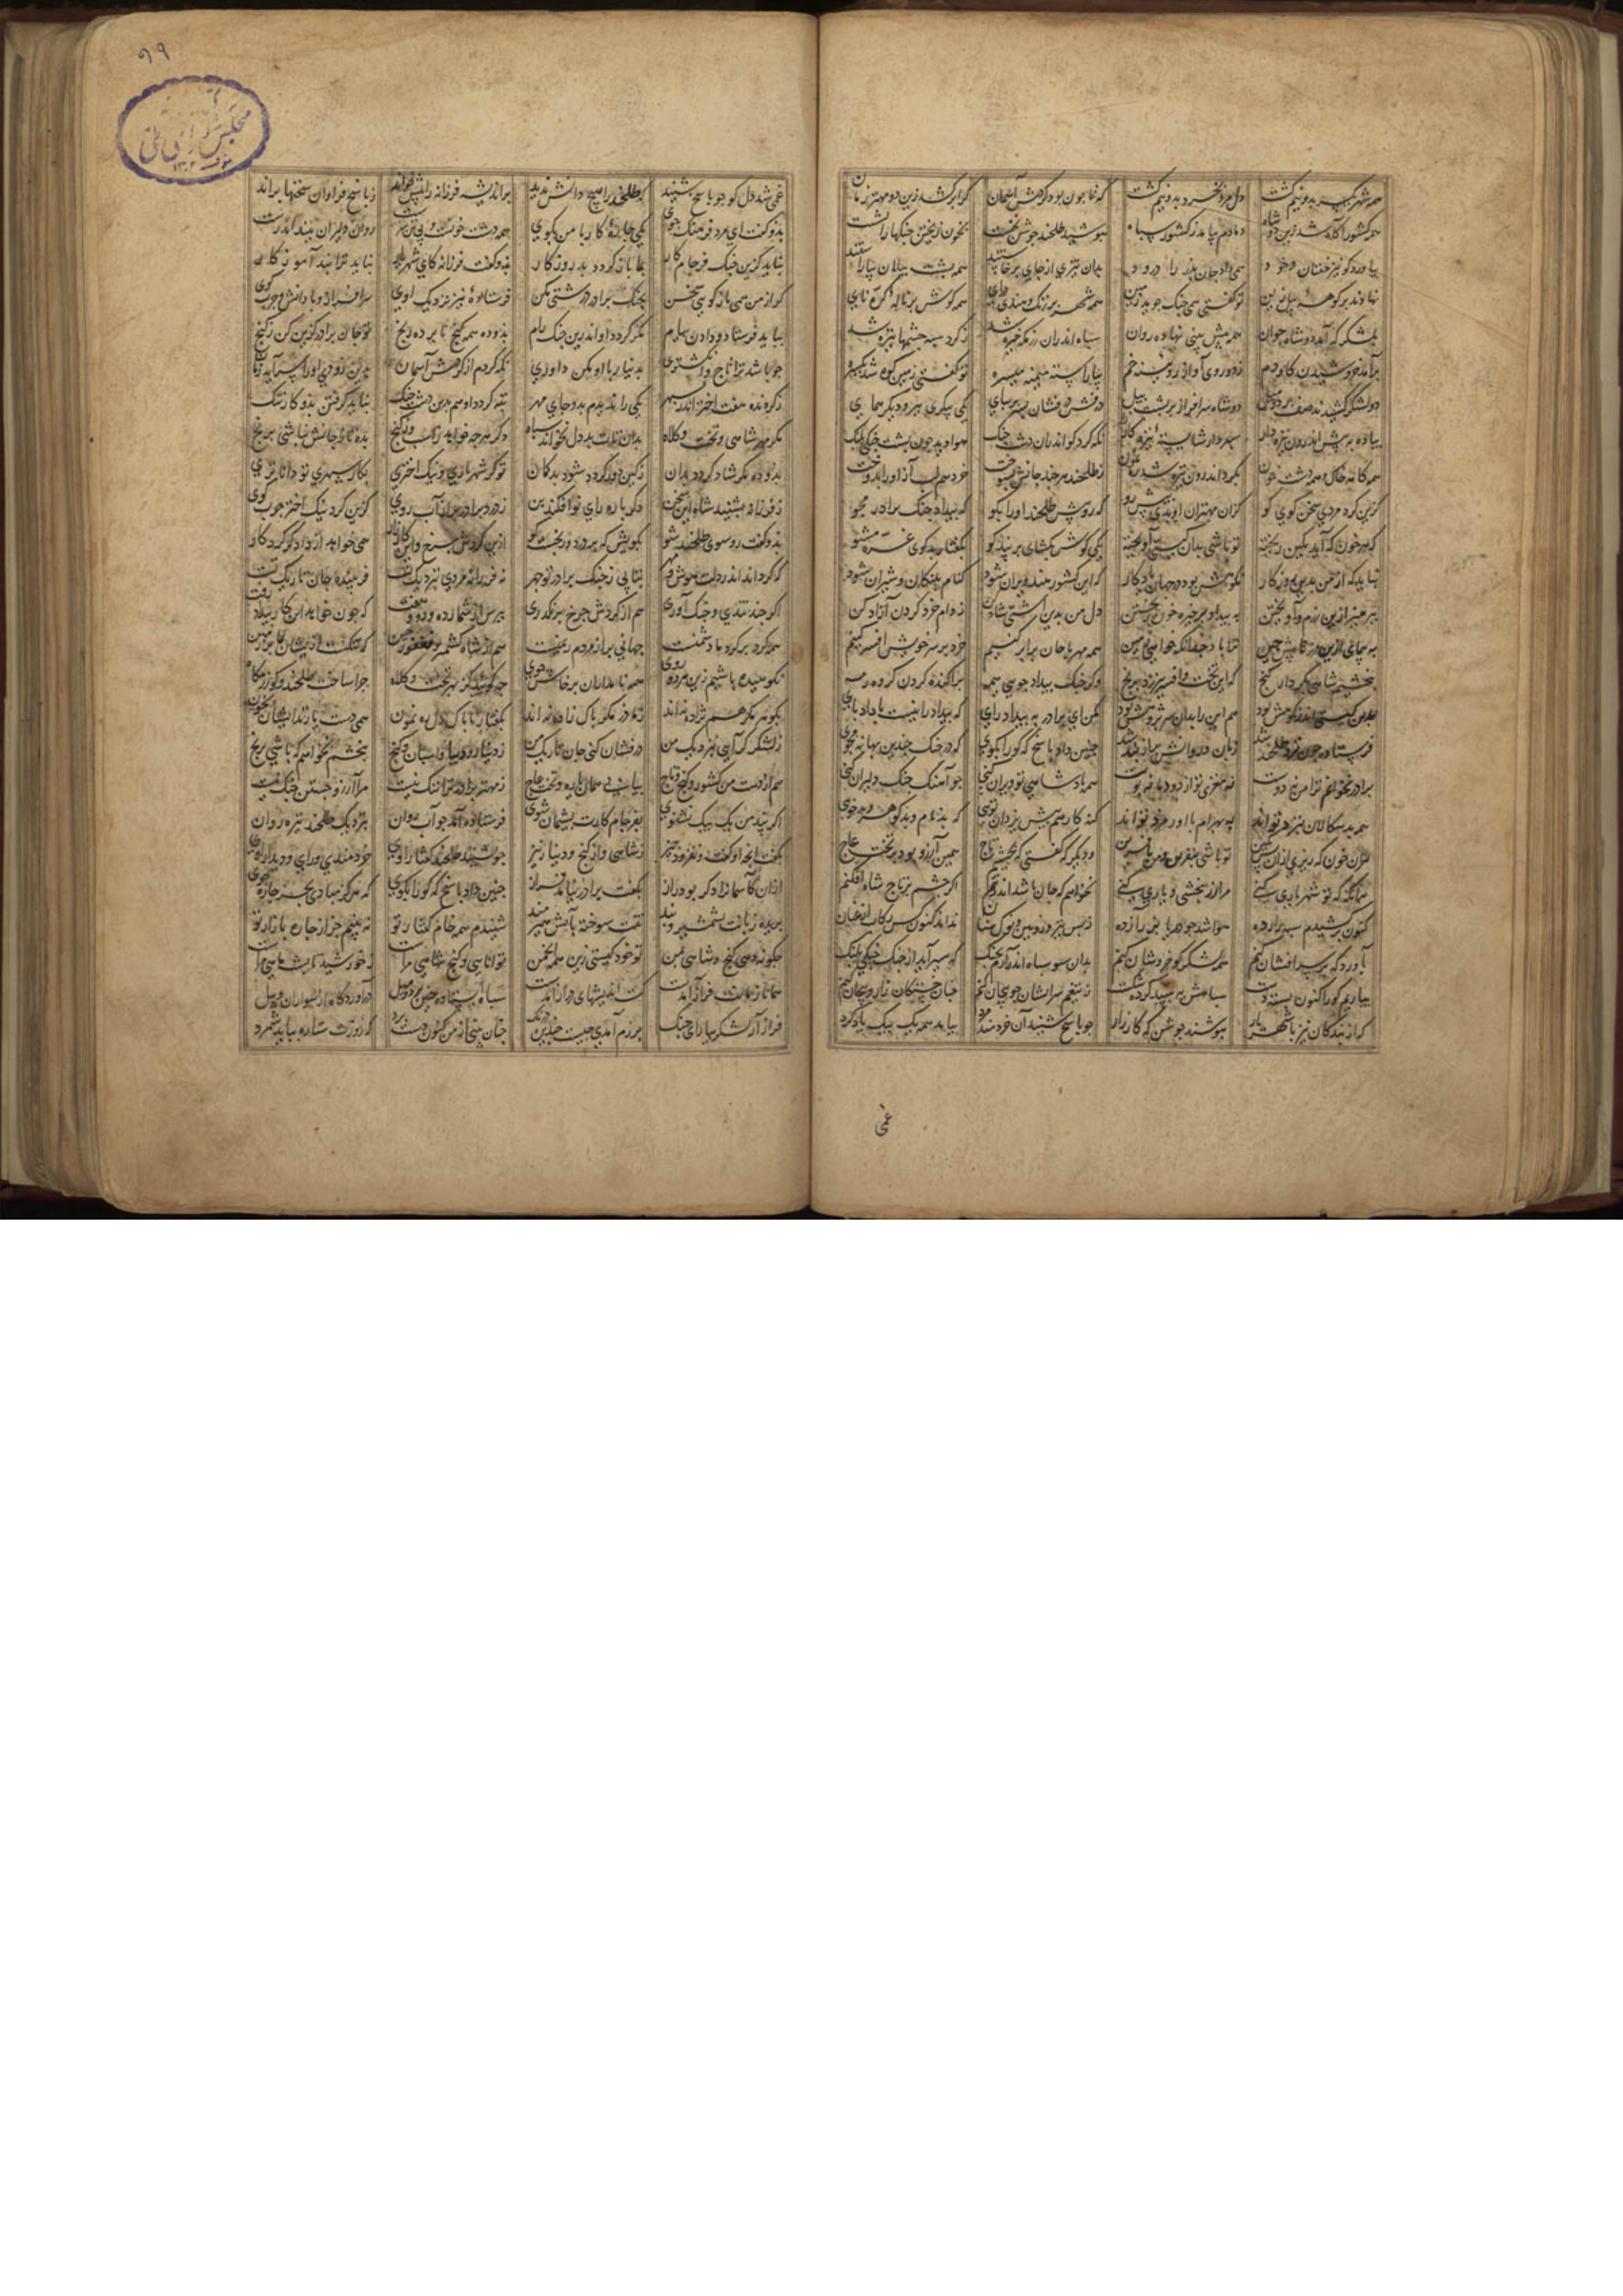 همه شهر یکسر بدو نیم گشت دل مرد بخرد بدو نیم گشت که تا چون بود گردش آسمان کرا برکشد زین دو مهتر زمان
همه کشور آگاه شد زین دو شاه دمادم بیامد ز کشور سپاه بپوشید طلخند جوشن نخست بخون ریختن جنگها را بشست
بیاورد کو نیز خفتان و خود همی داد جان پدر را درود بدان تیزی از جای برخاستند همی پشت پیلان بیاراستند
نهادند بر کوهه پیل زین تو گفتی همی جنگ جوید زمین همه شهر پر زنگ و هندی درای همه گوش پر ناله کرنای
بلشکر که آمد دو شاه جوان همه بیش بینی نهاده روان سپاه اندران رزمکه خیره شد ز کرد سیه چشمها تیره شد
برآمد خروشیدن کاودم ز دو روی آواز رویینه خم بیاراسته میمنه میسره تو گفتی زمین کوه شد یکسره
دو لشکر کشیدند صف بر دو میل دو شاه سرافراز بر پشت پیل درفشی درفشان بسر بر بپای یکی پیکرش ببر و دیگر همای
پیاده به پیش اندرون نیزه دار سپردار شایسته نکه کرد کو اندران دشت جنک هوا دید چون پشت جنکی پلنک
همه دشت خون بکرد اندرون نیزه شد رهنمون ز طلخند هرچند جانش بسوخت خرد هم لب آز او را بدوخت
کزین کرد مردی سخن کوی کو کزان مهتران او بدی پیش رو که رو پیش طلخند او را بکو که بیداد جنک برادر مجو
که هر خون که آید بکین ریخته تو باشی بدان کیتی آویخته یکی کوش بکشای بر پند کو بکفتار بدکوی غره مشو
نباید که از من بدین روزکار نکوهش بود در جهان یادکار که این کشور هند ویران شود کنام پلنکان و شیران شود
بپرهیز ازین رزم و آویختن به بیداد بر خیره خون ریختن دل من بدین آشتی شاد کن ز دام خرد کردن آزاد کن
ازین مرز تا پیش چین ترا باد چندانکه خواهی زمین همه مهر با جان برابر کنیم خرد بر سر خویش افسر کنیم
ببخشیم شاهی بکردار کنج که این تخت و افسر نیرزد برنج وکر جنک بیداد جویی همه پراکنده کردن کروه رمه
بدین کیتی اندر نکوهش بود هم این را بدان سر پژوهش بود مکن ای برادر به بیداد رای که بیداد را نیست با داد پای
فرستاده چون نزد طلخند شد زبان و روانش پر از پند شد چنین داد پاسخ که کو را بکوی که در جنک چندین بهانه مجوی
برادر نخوانم ترا من نه دوست نه مغزی تو از دوده ما نه پوست همه پادشاهی تو ویران کنی چو آهنک جنک دلیران کنی
همه بدسکالان بنزد تواند به بهرام با اورمزد تواند کنه کار هم پیش یزدان توی که بدنام و بدکوهر و بدخوی
ازان خون که ریزی ازان پس بکین تو باشی بنفرین و من بآفرین ودیکر که کفتی ببخشیم تاج همین آرزو بود بر تخت عاج
بدانکه که تو شهریاری کنی مرا ارز بخشی و یاری کنی نخواهم که جان باشد اندر تنم اکر چشم بر تاج شاه افکنم
کنون برکشیدم سپه را رده هوا شد چو دیبا بزر آزده ز بس تیر و ژوبین و نوک سنان نداند کنون کس رکاب از عنان
بآوردکه بر سرافشان کنم همه لشکر کو خروشان کنم بدان سو سپاه اندر آرم بجنک که سیر آید از جنک جنکی پلنک
بیاریم کو را کنون بسته دست ز تیغم سرانشان چو بیجان کنم چنان خستکان زار و پیچان کنم
که از بندکان نیز با شهریار نپوشند جوشن که کارزار چو پاسخ شنید آن خردمند مرد بیامد همه یک بیک یاد کرد
غمی
۹۹
غمی شد دل کو چو پاسخ شنید که طلخند را هیچ دانش ندید براندیشه فرزانه را پیش خواند ز پاسخ فراوان سخنها براند
بدو کفت ای مرد فرهنک جوی یکی چاره کار با من بکوی همه دشت خونست و بی تن سرست روان دلیران ببند اندرست
نباید کزین جنک فرجام کار بما بازکردد بد روزکار بدو کفت فرزانه کای شهریار نباید ترا پند آموزکار
کر از من همی بازکویی سخن بجنک برادر درشتی مکن فرستاده تیز نزدیک اوی سرافراز و با دانش و چرب کوی
بباید فرستاد و دادن پیام مکر کردد او اندرین جنک رام بدو ده همه کنج نابرده رنج تو جان برادر کزین کن ز کنج
چو باشد ترا تاج و انکشتری بدینار با او مکن داوری نکه کردم از کردش آسمان بدین زودی او را سرآید زمان
ز کردنده هفت اختر اندر سپهر یکی را ندیدم بدو جای مهر تبه کردد او هم بدین دشت جنک نباید کرفتن بدو کار تنک
مکر مهر شاهی و تخت و کلاه بدان تات بددل نخواند سپاه دکر هرچه خواهد ز اسب و ز کنج بده تا ز جانش نباشی برنج
بدو ده مکر شاد کردد بدان ز کین دور کردد شود بدکمان تو کر شهریاری و نیک اختری بکار سپهری تو داناتری
ز فرزانه بشنید شاه این سخن دکر باره رای نو افکند بن ز درد برادر پر از آب روی کزین کرد نیک اختر چرب کوی
بدو کفت رو سوی طلخند شو بکویش که پر درد و رنجست کو ازین کردش و این کارزار همی خواهد از دادکر کردکار
که کرداند اندر دلت هوش و مهر بتابی ز جنک برادر تو چهر ز فرزانه مردی بنزدیک تست فریبنده جان تاریک تست
اکر چند تندی و جنک آوری هم از کردش چرخ بر نکذری بپرس از شمار ده و دو و هفت که چون خواهد این کار بیداد رفت
همه کرد بر کرد ما دشمنست جهانی پر از مردم ریمنست هم از شاه کشمیر و فغفور چین که تنکست ازیشان بما بر زمین
نکوهیده باشیم زین هر دو روی همه نامداران پرخاش جوی چه کویند کز بهر تخت و کلاه چرا ساخت طلخند و کو رزمکاه
بکوهر مکر هم نژاده نه اند ز مادر مکر پاک زاده نه اند بکفتار ناپاک دل ره نمون همی دست یازند ایشان بخون
ز لشکر کر آیی بنزدیک من درفشان کنی جان تاریک من ز دینار و دیبا و اسپان و کنج ببخشم نخواهم که باشی برنج
هم از دست من کشور و کنج و تاج بیابی همان یاره و تخت عاج ز مهتر برادر ترا ننک نیست مرا آرزو جستن جنک نیست
اکر پند من یک بیک نشنوی بفرجام کارت پشیمان شوی فرستاده آمد چو آب روان بنزدیک طلخند تیره روان
بکفت آنچه او کفت و بفزود نیز ز شاهی و از کنج و دینار نیز چو بشنید طلخند کفتار اوی خردمندی و رای و دیدار اوی
ازان کآسمان را دکر بود راز بکفت برادر نیامد فراز چنین داد پاسخ که کو را بکوی که هرکز مبادی بجز چاره جوی
بریده زبانت بشمشیر بد تنت سوخته بآتش هیربد شنیدم همه خام کفتار تو نه بینم جز از چاره بازار تو
چکونه دهی کنج و شاهی بمن تو خود کیستی زین همه انجمن توانایی و کنج و شاهی مراست ز خورشید تا پشت ماهی مراست
همانا زمانت فراز آمدست کت اندیشهای دراز آمدست سپاه ایستاده چنین بر دو میل درآوردکاه از سواران و پیل
فراز آر لشکر بیارای جنک برزم آمدی چیست چندین درنک چنان بینی از من کنون دستبرد که روزت ستاره بباید شمرد